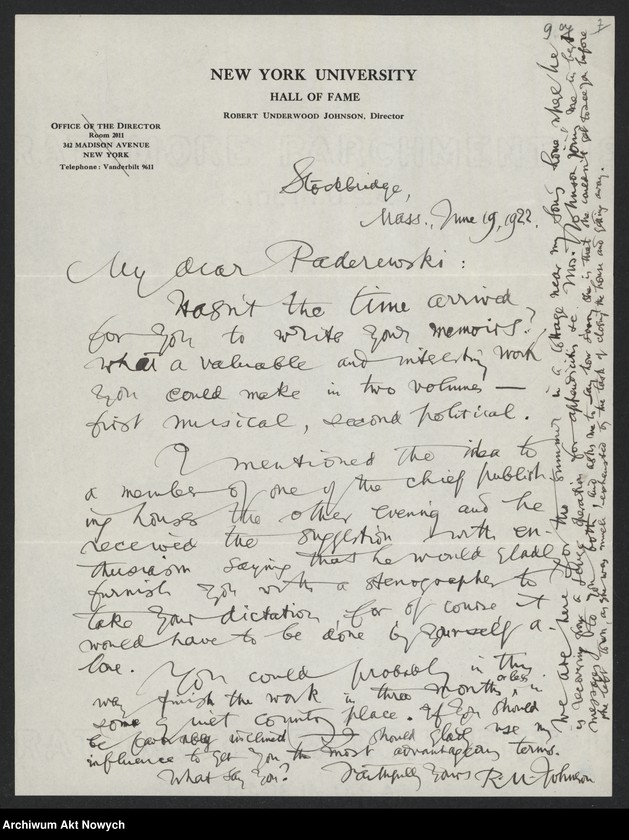 NEW YORK UNIVERSITY
HALL OF FAME
ROBERT UNDERWOOD JOHNSON, Director
OFFICE OF THE DIRECTOR
Room 2011
342 MADISON AVENUE
NEW YORK
Telephone: Vanderbilt 9611
Stockbridge,
Mass., June 19, 1922.
My dear Paderewski:
Hasn't the time arrived
for you to write your memoirs?
What a valuable and interesting work
you could make in two volumes —
first musical, second political.
I mentioned the idea to
a member of one of the chief publish-
ing houses the other evening and he
received the suggestion with en-
thusiasm saying that he would gladly
furnish you with a stenographer to
take your dictation, for of course it
would have to be done by yourself a-
lone.
You could probably in this
way finish the work in three months or less in
some quiet country place. If you should
be favorably inclined I should gladly use my
influence to get you the most advantageous terms.
What say you? Faithfully Yours R. U. Johnson
We are here for the summer in a cottage near my son's home, where he
is recovering from a operation for appendicitis &c. Mrs. Johnson joins me in best
messages to you both, and asks me to say how sorry she is that she couldn't get to see you before
she left town, as she was much exhausted by the task of closing the house and going away.
Archiwum Akt Nowych